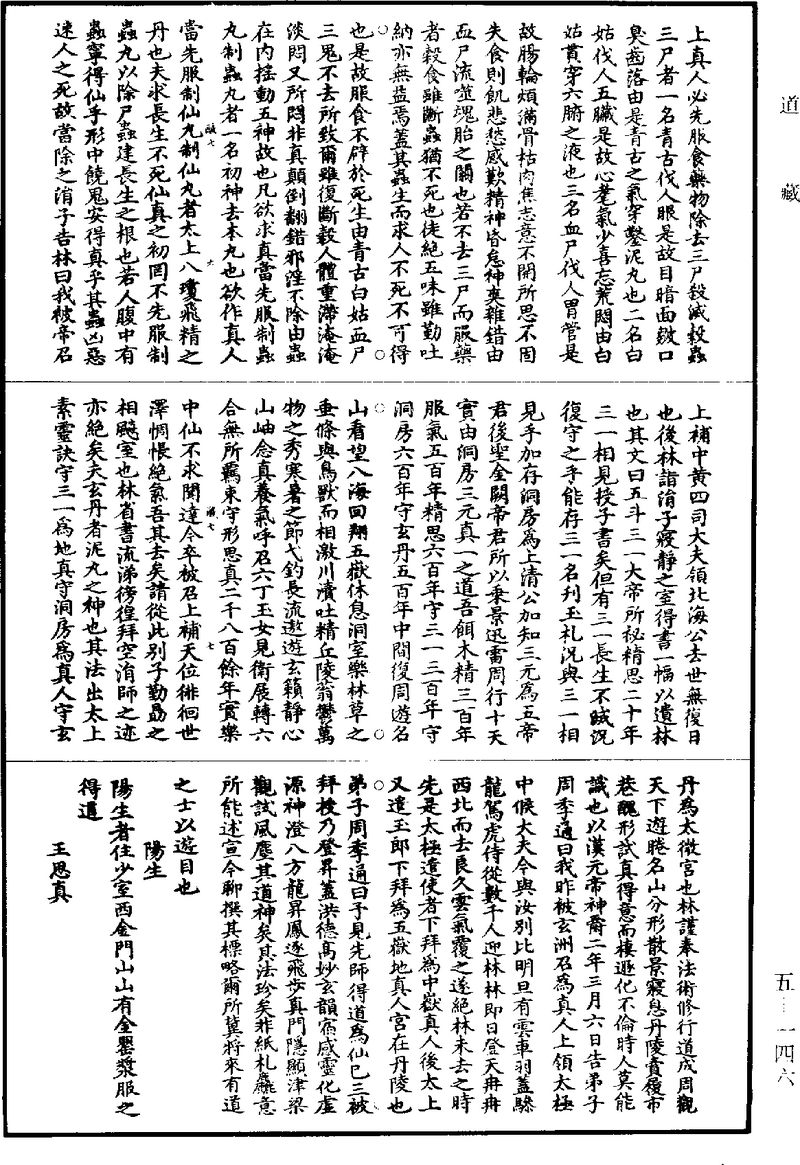 道藏
上真人必先服食藥物除去三尸殺滅穀蟲
三尸者一名青古伐人眼是故目暗面皺口
臭齒落由是青古之氣穿鑿泥丸也二名白
姑伐人五臟是故心耄氣少喜忘荒悶由白
姑貫穿六腑之液也三名血尸伐人胃管是
故腸輪煩滿骨枯肉焦志意不開所思不固
失食則飢悲愁感歎精神昏怠神爽雜錯由
血尸流噬魂胎之關也若不去三尸而服藥
者穀食雖斷蟲猶不死也徒絕五味雖勤吐
納亦無益焉蓋其蟲生而求人不死不可得
也是故服食不辟於死生由青古白姑血尸
三鬼不去所致爾雖復斷穀人體重滯淹淹
淡悶又所悶非真顛倒翻錯邪淫不除由蟲
在內搖動五神故也凡欲求真當先服制蟲
丸制蟲丸者一名初神去本丸也欲作真人
當先服制仙丸制仙丸者太上八瓊飛精之
丹也夫求長生不死仙真之初罔不先服制
蟲丸以除尸蟲建長生之根也若人腹中有
蟲寧得仙乎形中饒鬼安得真乎其蟲凶惡
速人之死故當除之涓子告林曰我被帝召
上補中黃四司大夫領北海公去世無復日
也後林詣涓子寢靜之室得書一幅以遺林
也其文曰五斗三一大帝所秘精思二十年
三一相見授子書矣但有三一長生不滅況
復守之乎能存三一名刊玉札況與三一相
見乎加存洞房為上清公加知三元為五帝
君後聖金闕帝君所以乘景迅雷周行十天
實由洞房三元真一之道吾餌木精三百年
服氣五百年精思六百年守三一三百年守
洞房六百年守玄丹五百年中間復周遊名
山看望八海回翔五嶽休息洞室樂林草之
垂條與鳥獸而相激川瀆吐精丘陵蓊鬱萬
物之秀寒暑之節弋釣長流遨遊玄瀨靜心
山岫念真養氣呼召六丁玉女見衛展轉六
合無所羈束守形思真二千八百餘年實樂
中仙不求聞達今卒被召上補天位徘徊世
澤惆悵絕氣吾其去矣請從此別子勤勗之
相飈室也林省書流涕徬徨拜空涓師之迹
亦絕矣夫玄丹者泥丸之神也其法出太上
素靈訣守三一為地真守洞房為真人守玄
丹為太微宮也林謹奉法術修行道成周觀
天下遊睠名山分形散景寢息丹陵賣履市
巷醜形試真得意而棲遯化不倫時人莫能
識也以漢元帝神爵二年三月六日告弟子
周季通曰我昨被玄洲召為真人上領太極
中候大夫今與汝別比明旦有雲車羽蓋驂
龍駕虎侍從數千人迎林林即日登天冉冉
西北而去良久雲氣覆之遂絕林未去之時
先是太極遣使者下拜為中嶽真人後太上
又遣玉郎下拜為五嶽地真人宮在丹陵也
弟子周季通曰予見先師得道為仙已三被
拜授乃登昇蓋洪德高妙玄韻宿感靈化虛
源神澄八方龍昇鳳逐飛步真門隱顯津梁
觀試風塵其道神矣其法珍矣非紙札麤意
所能述宣今聊撰其標略爾所冀將來有道
之士以遊目也
陽生
陽生者住少室西金門山山有金罌漿服之
得道
王思真
五－一四六